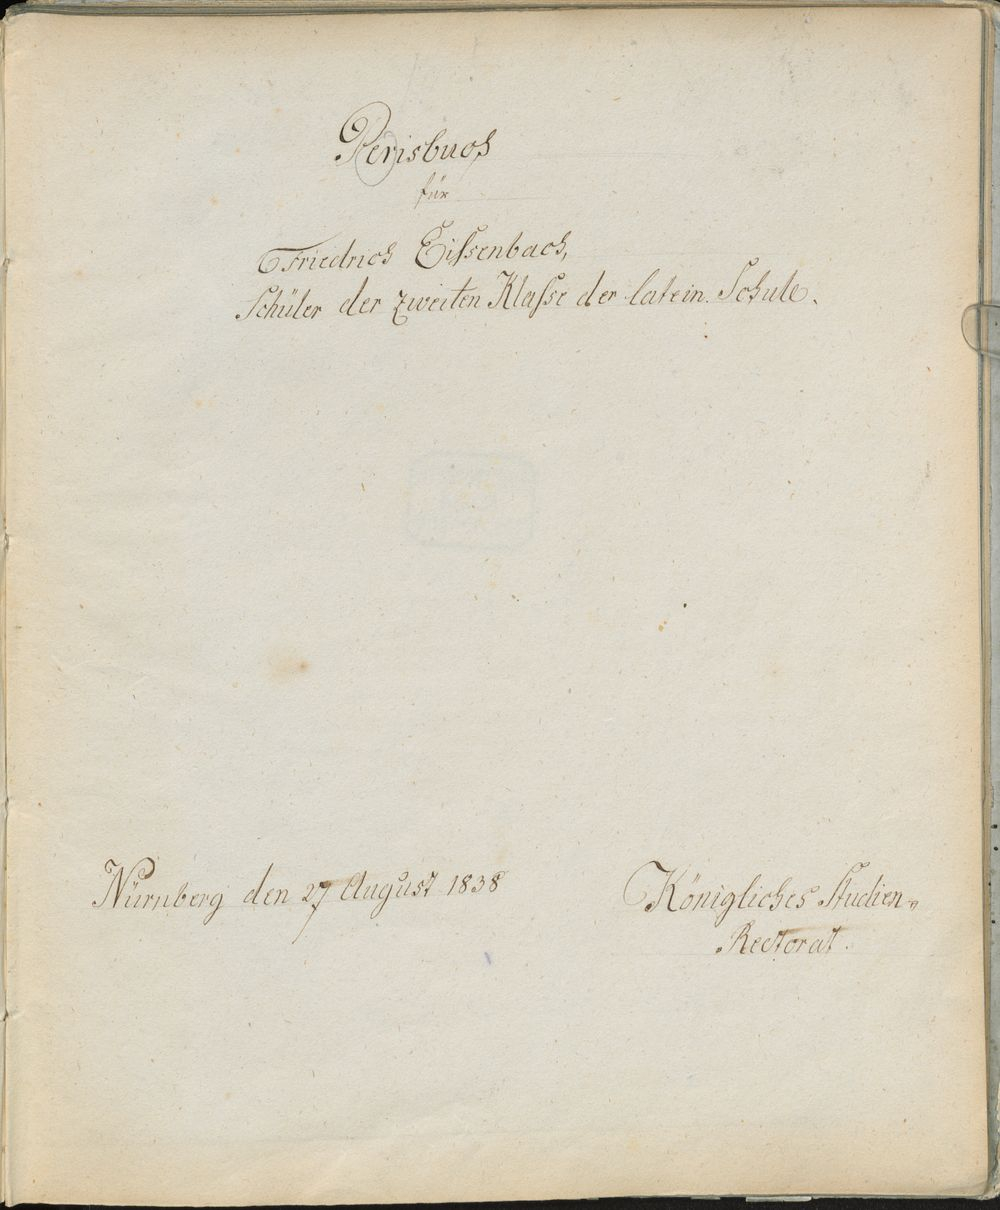 Prrisbuch
für
Friedrich Eissenbach,
Schüler der zweiten Klasse der latein. Schule.
Nürnberg den 27 August 1838
Königliches Studien-
Rectorat.